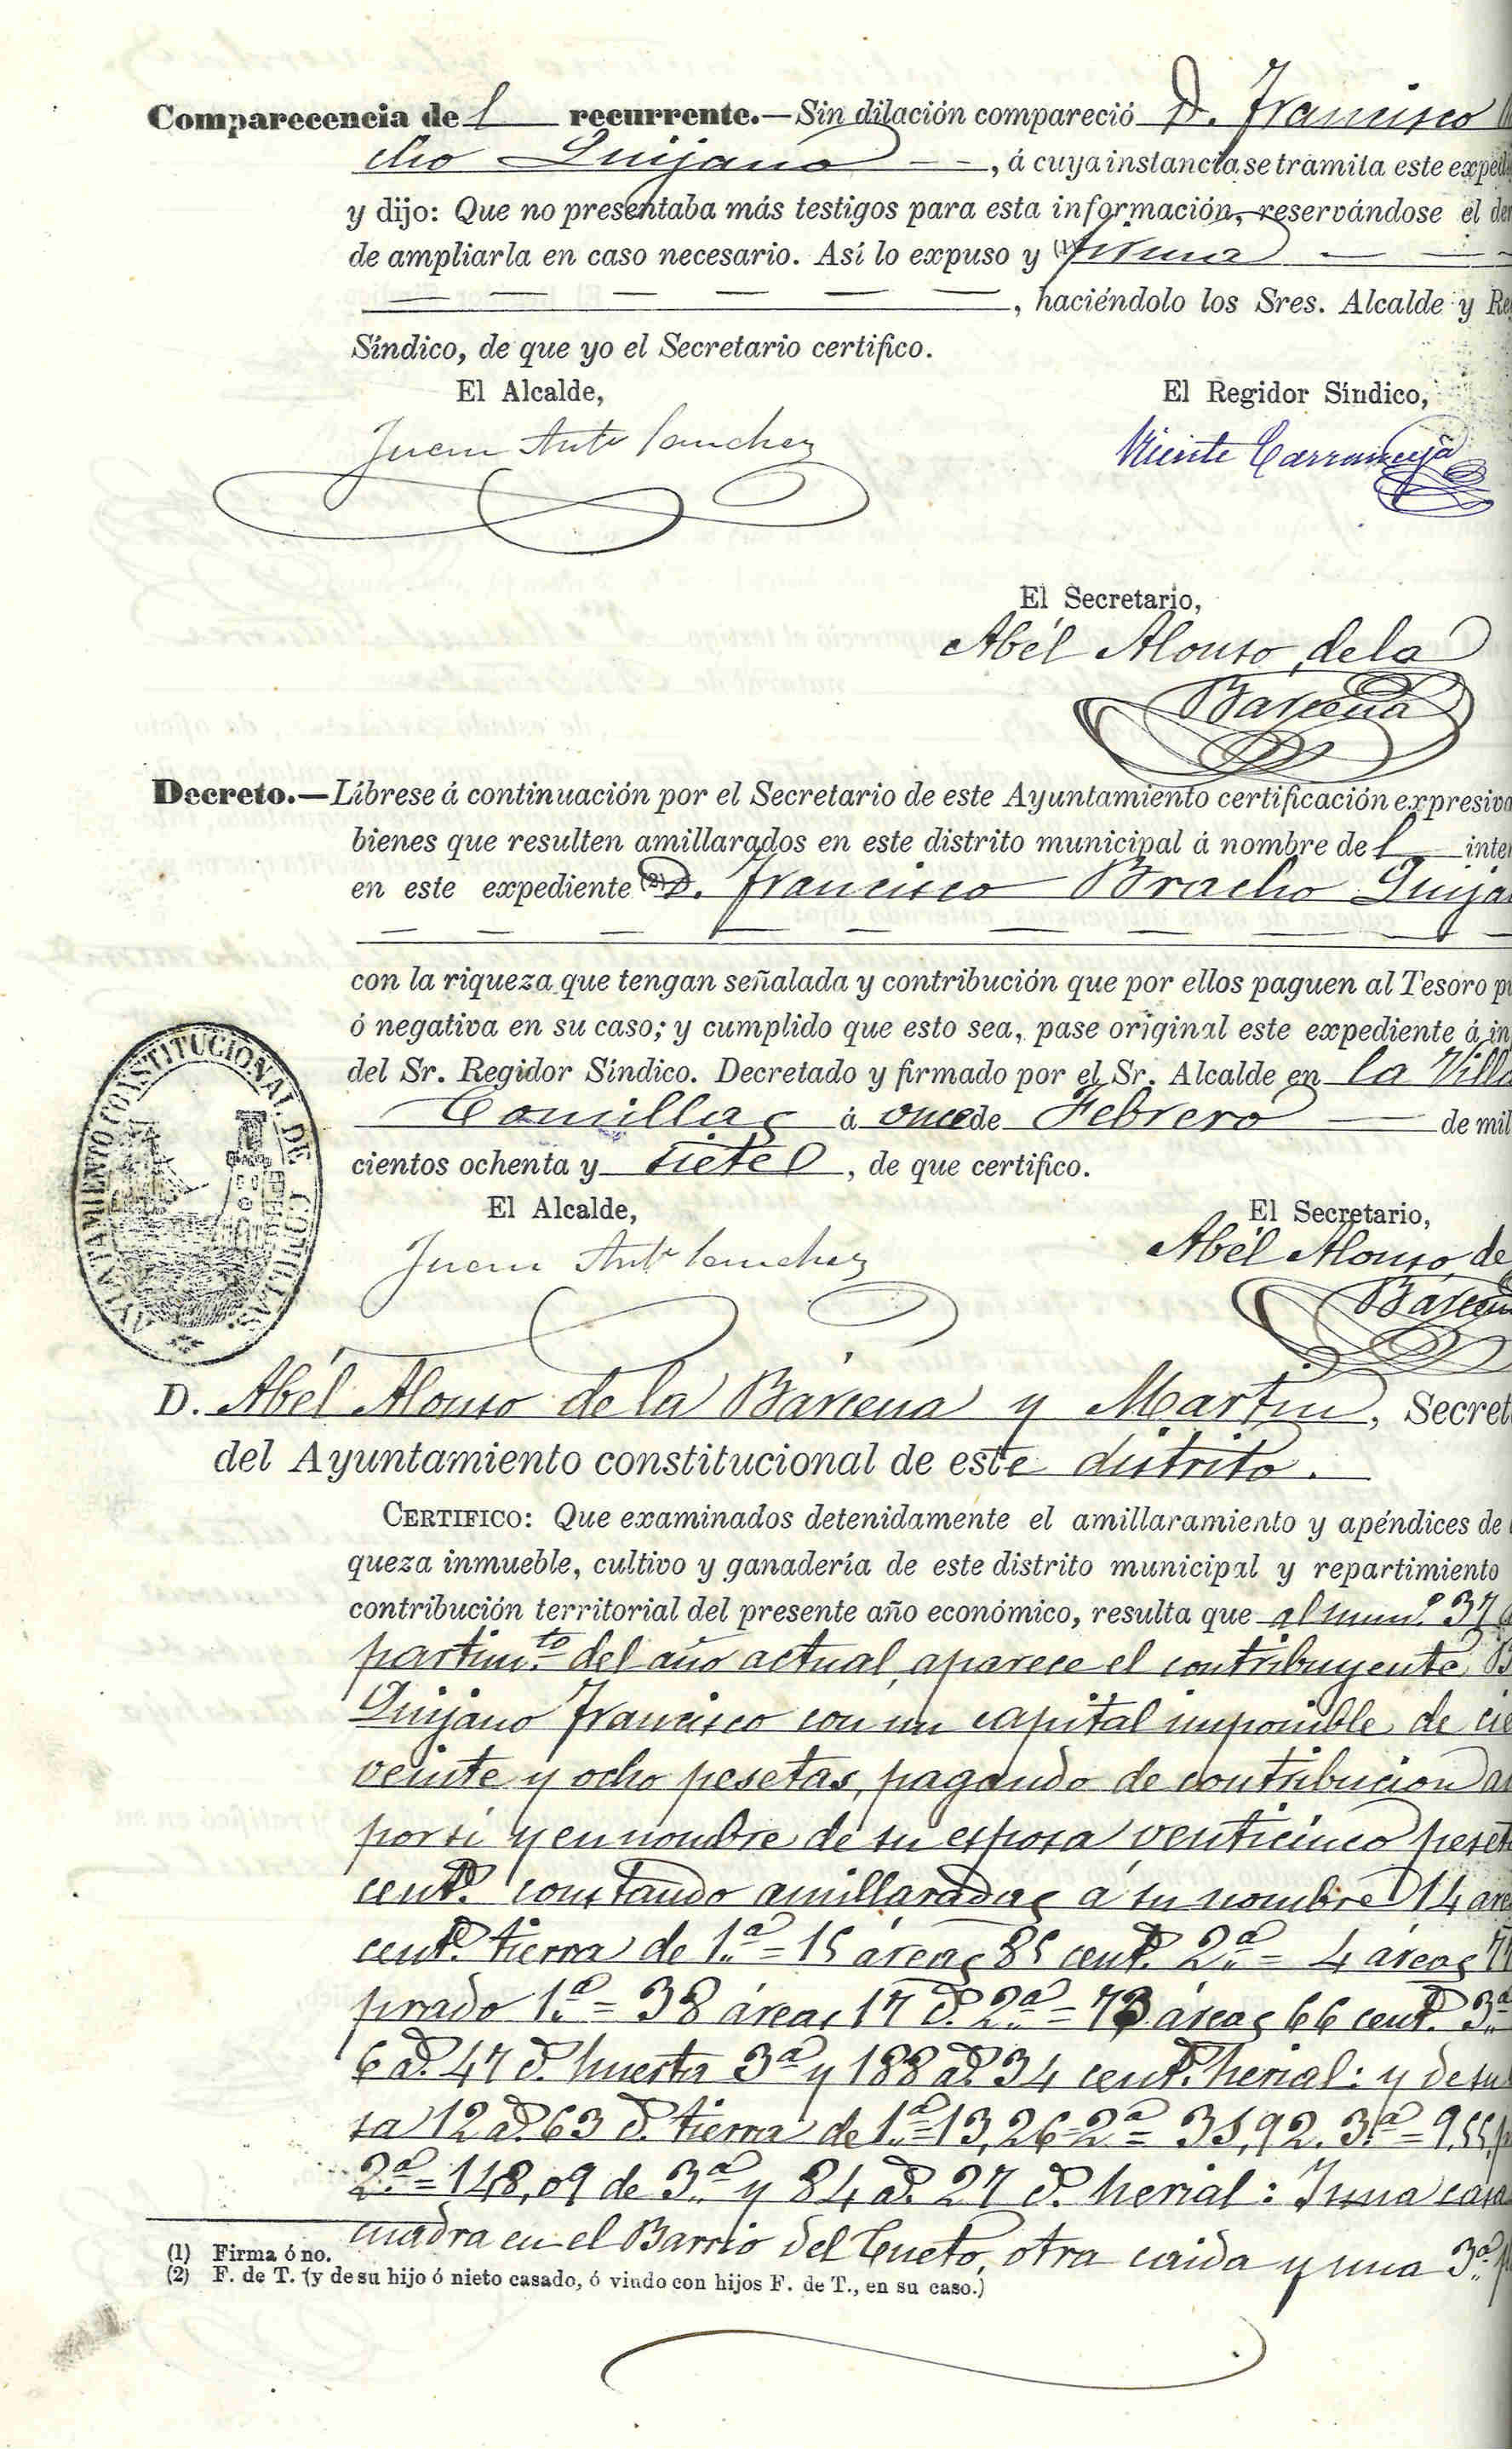 Comparecencia de l recurrente.—Sin dilación compareció D. Francisco
cho Quijano — — , á cuya instancia se tramita este exped
y dijo: Que no presentaba más testigos para esta información, reservándose el der
de ampliarla en caso necesario. Así lo expuso y (1) firma — —
— — — — — — , haciéndolo los Sres. Alcalde y Re
Síndico, de que yo el Secretario certifico.
El Alcalde,
El Regidor Síndico,
Juan Ant.º Sanchez
Vicente
El Secretario,
Abél Alonso de la
Bárcena
Decreto.—Líbrese á continuación por el Secretario de este Ayuntamiento certificación expresiva
bienes que resulten amillarados en este distrito municipal á nombre de l inter
en este expediente (2) D. Francisco Bracho Quija
— — — — — — — — —
con la riqueza que tengan señalada y contribución que por ellos paguen al Tesoro p
ó negativa en su caso; y cumplido que esto sea, pase original este expediente á in
del Sr. Regidor Síndico. Decretado y firmado por el Sr. Alcalde en la Villa
Comillas á once de Febrero — de mil
cientos ochenta y siete, de que certifico.
El Alcalde,
El Secretario,
Juan Ant.º Sanchez
Abél Alonso de
Bárcena
AYUNTAMIENTO CONSTITUCIONAL DE COMILLAS.
D. Abél Alonso de la Bárcena y Martin, Secret
del Ayuntamiento constitucional de este distrito.
CERTIFICO: Que examinados detenidamente el amillaramiento y apéndices de
queza inmueble, cultivo y ganadería de este distrito municipal y repartimiento
contribución territorial del presente año económico, resulta que al num.º 37
partim.to del año actual, aparece el contribuyente B
Quijano Francisco con un capital imponible de cie
veinte y ocho pesetas, pagando de contribucion a
por sí y en nombre de su esposa venticinco peset
cent.s constando amillaradas a su nombre 14 are
cent.s tierra de 1.ª = 15 áreas 85 cent.s 2.ª = 4 áreas 71
prado 1.ª = 38 áreas 17 c.s 2.ª = 73 áreas 66 cent.s 3.ª
6 a.s 47 c.s huerta 3.ª y 188 a.s 34 cent.s herial: y de su
sa 12 a.s 63 c.s tierra de 1.ª = 13,26 = 2.ª = 35,92. 3.ª = 9,55 p
2.ª = 148,09 de 3.ª y 84 a.s 27 c.s herial: Y una casa
cuadra en el Barrio del Cueto, otra caida y una 3.ª p
(1) Firma ó no.
(2) F. de T. (y de su hijo ó nieto casado, ó viudo con hijos F. de T., en su caso.)